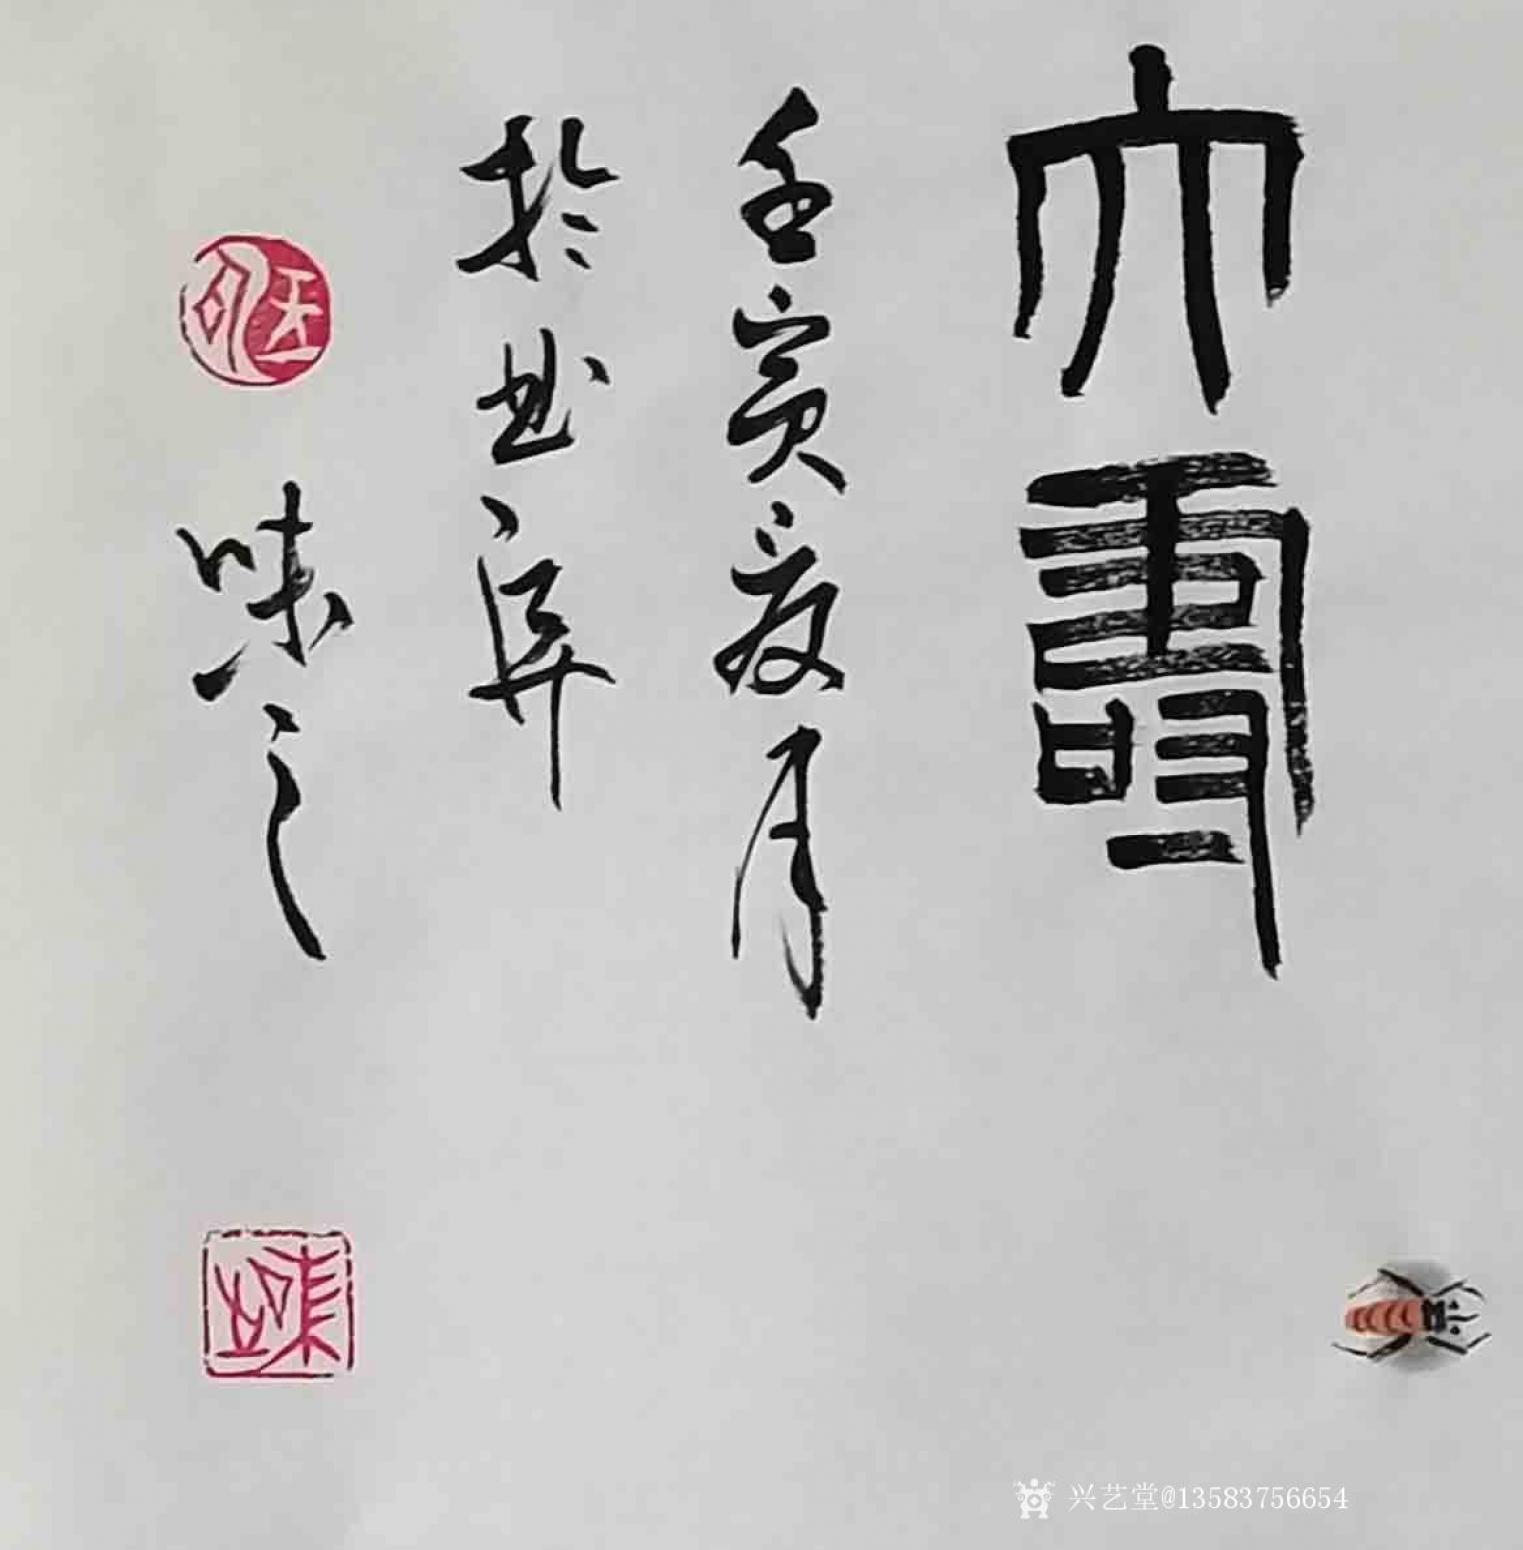 大壽
壬寅夏月
於曲阜
味之
兴艺堂@13583756654